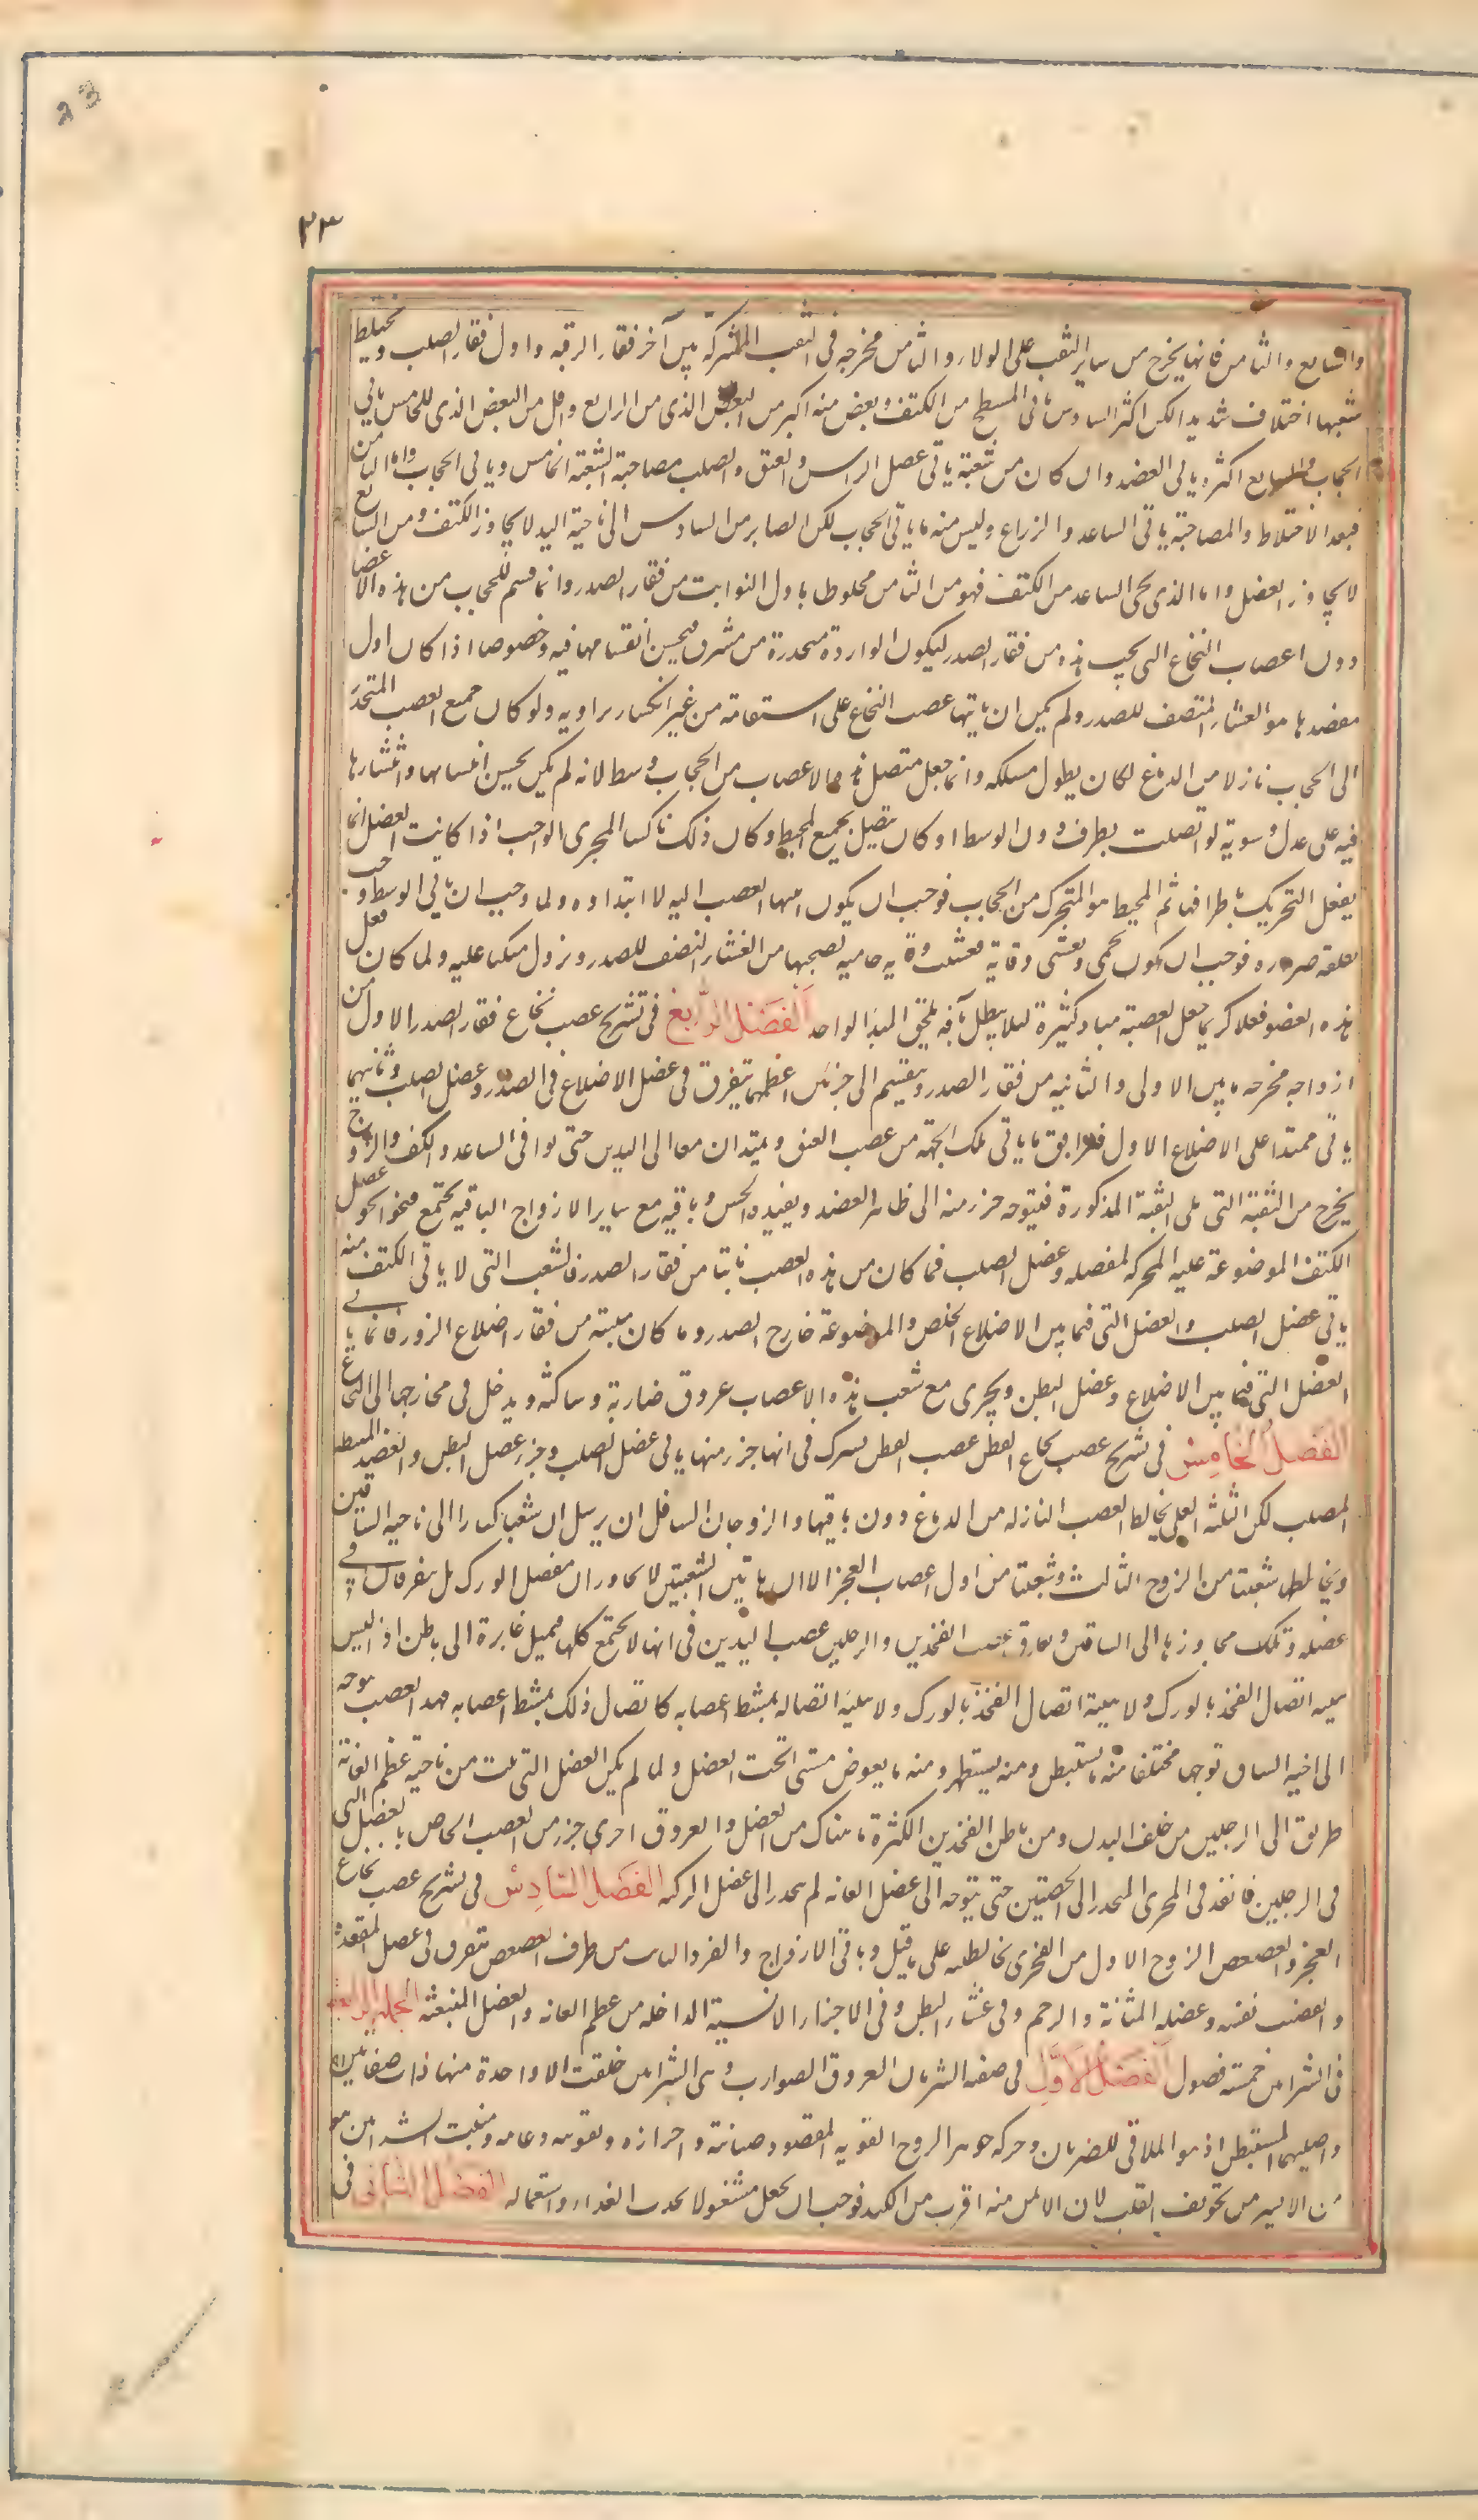 23
٢٣
والسابع والثامن فانها يخرج من ساير الثقب على الولاء والثامن مخرجه فى الثقب المشتركة بين آخر فقار الرقبه واول فقار الصلب ويختلط
شعبها اختلاف شديد الكن اكثر السادس ياتى المسطح من الكتف وبعض منه اكبر من البعض الذى من الرابع واقل من البعض الذى للخامس ياتى
الحجاب والسابع اكثره ياتى العضد وان كان من شعبة ياتى عضل الراس والعنق والصلب مصاحبة لشعبة الخامس وياتى الحجاب واما الثامن
فبعد الاختلاط والمصاحبة ياتى الساعد والزراع وليس منه ما ياتى الحجاب لكن الصاير من السادس الى ناحية اليد لا يجاوز الكتف ومن السابع
لا يجاوز العضل واما الذى يجى الساعد من الكتف فهو من الثامن مخلوطا باول النوابت من فقار الصدر وانما قسم للحجاب من هذه الاعضا
دون اعصاب النخاع التى يجب هذه من فقار الصدر ليكون الواردة منحدرة من مشرف فيحسن انقسامها فيه وخصوصا اذا كان اول
مقصدها هو الغشاء المنصف للصدر ولم يكن ان ياتيها عصب النخاع على استقامة من غير انكسار بزاويه ولو كان جميع العصب المتحدر
الى الحجاب نازلا من الدماغ لكان يطول مسلكه وانما جعل متصل هذه الاعصاب من الحجاب وسطا لانه لم يكن يحسن انقسامها وانتشارها
فيه على عدل وسوية لو اتصلت بطرف دون الوسط او كان تتصل بجميع المحيط وكان ذلك ناكسا المجرى الواجب اذا كانت العضل انما
يفعل التحريك باطرافها ثم المحيط هو المتحرك من الحجاب فوجب ان يكون انتها العصب اليه لا ابتداوه ولما وجب ان ياتى الوسط وجب
تعلقه ضروره فوجب ان يكون يحمى ويغشى وقاية فغشيت وقاية حاميه تصحبها من الغشاء المنصف للصدر ونزول متكيا عليه ولما كان فعل
هذه العضو فعلا كريما جعل لعصبة مباد كثيرة ليلا يبطل بافه تلحق المبدا الواحد الفصل الرابع فى تشريح عصب نخاع فقار الصدر الاول من
ازواجه مخرجه بين الاولى والثانيه من فقار الصدر وينقسم الى جزئين اعظمهما يتفرق فى عضل الاضلاع فى الصدر وعضل الصلب وثانيهما
ياتى ممتدا على الاضلاع الاول فيرافق ما ياتى تلك الجهة من عصب العنق ويمتدان معا الى اليدين حتى يوافى الساعد والكف والزوج
يخرج من الثقبة التى تلى الثقبة المذكورة فيتوجه جزء منه الى ظاهر العضد ويفيده الحس وباقيه مع ساير الازواج الباقيه يجتمع فينحو نحو عضل
الكتف الموضوعة عليه المحركة لمفصله وعضل الصلب فما كان من هذه العصب نابتا من فقار الصدر فالشعب التى لا ياتى الكتف منه
ياتى عضل الصلب والعضل التى فيما بين الاضلاع الخلص والموضوعة خارج الصدر وما كان منبته من فقار اضلاع الزور فانما ياتى
العضل التى فيما بين الاضلاع وعضل البطن ويجرى مع شعب هذه الاعصاب عروق ضاربة وساكنه ويدخل فى مخارجها الى النخاع
الفصل الخامس فى تشريح عصب نخاع القطن عصب القطن يشرك فى انها جزء منها ياتى عضل الصلب وجزء عضل البطن والعضل المستبطنه
الصلب لكن الثلثة العلى تخالط العصب النازله من الدماغ دون باقيها والزوجان السافلان يرسلان شعبا كبارا الى ناحيه الساقين
ويخالطها شعبتا من الزوج الثالث وشعبتا من اول اعصاب العجز الا ان هاتين الشعبتين لا يجاوزان مفصل الورك بل يتفرقان فى
عضله وتلك تجاوزها الى الساقين وتفارق عصب الفخذين والرجلين عصب اليدين فى انها لا يجتمع كلها فيميل غابرة الى باطن اذ ليس
هيئه اتصال الفخذ بالورك ولا هيئة اتصال الفخذ بالورك ولا هيئة اتصاله بمشط اعصابه كاتصال ذلك بمشط اعصابه فهذا العصب يتوجه
الى ناحيه الساق توجها مختلفا منه يستبطن ومنه يستظهر ومنه ما يغوض مستى تحت العضل ولما لم يكن العضل التى نبت من ناحية عظم العانة
طريق الى الرجلين من خلف البدن ومن باطن الفخذين لكثرة ما هناك من العضل والعروق اجرى جزء من العصب الخاص بالعضل التى
فى الرجلين فانفذ فى المجرى المنحدر الى الخصيتين حتى يتوجه الى عضل العانه ثم ينحدر الى عضل الركبه الفصل السادس فى تشريح عصب نخاع
العجز والعصعص الزوج الاول من العجزى يخالط على ما قيل وباقى الازواج والفرد النابت من طرف العصعص يتفرق فى عضل المقعدة
والقضيب نفسه وعضله المثانة والرحم وفى غشاء البطن وفى الاجزاء الانسية الداخله من عظم العانه والعضل المنبعثه الجملة الرابعة
فى الشرايين خمسة فصول الفصل الاول فى صفه الشريان العروق الضوارب وهى الشرايين خلقت الا واحدة منها ذات صفاقين
واصلبهما المستبطن اذ هو الملاقى للضربان وحركه جوهر الروح القويه المقصود صيانته واحرازه وتقويه وعايه ومنبت الشرايين هو
من الايسر من تجويف القلب لان الايمن منه اقرب من الكبد فوجب ان يجعل مشغولا بجذب الغذاء واستعماله الفصل الثانى فى